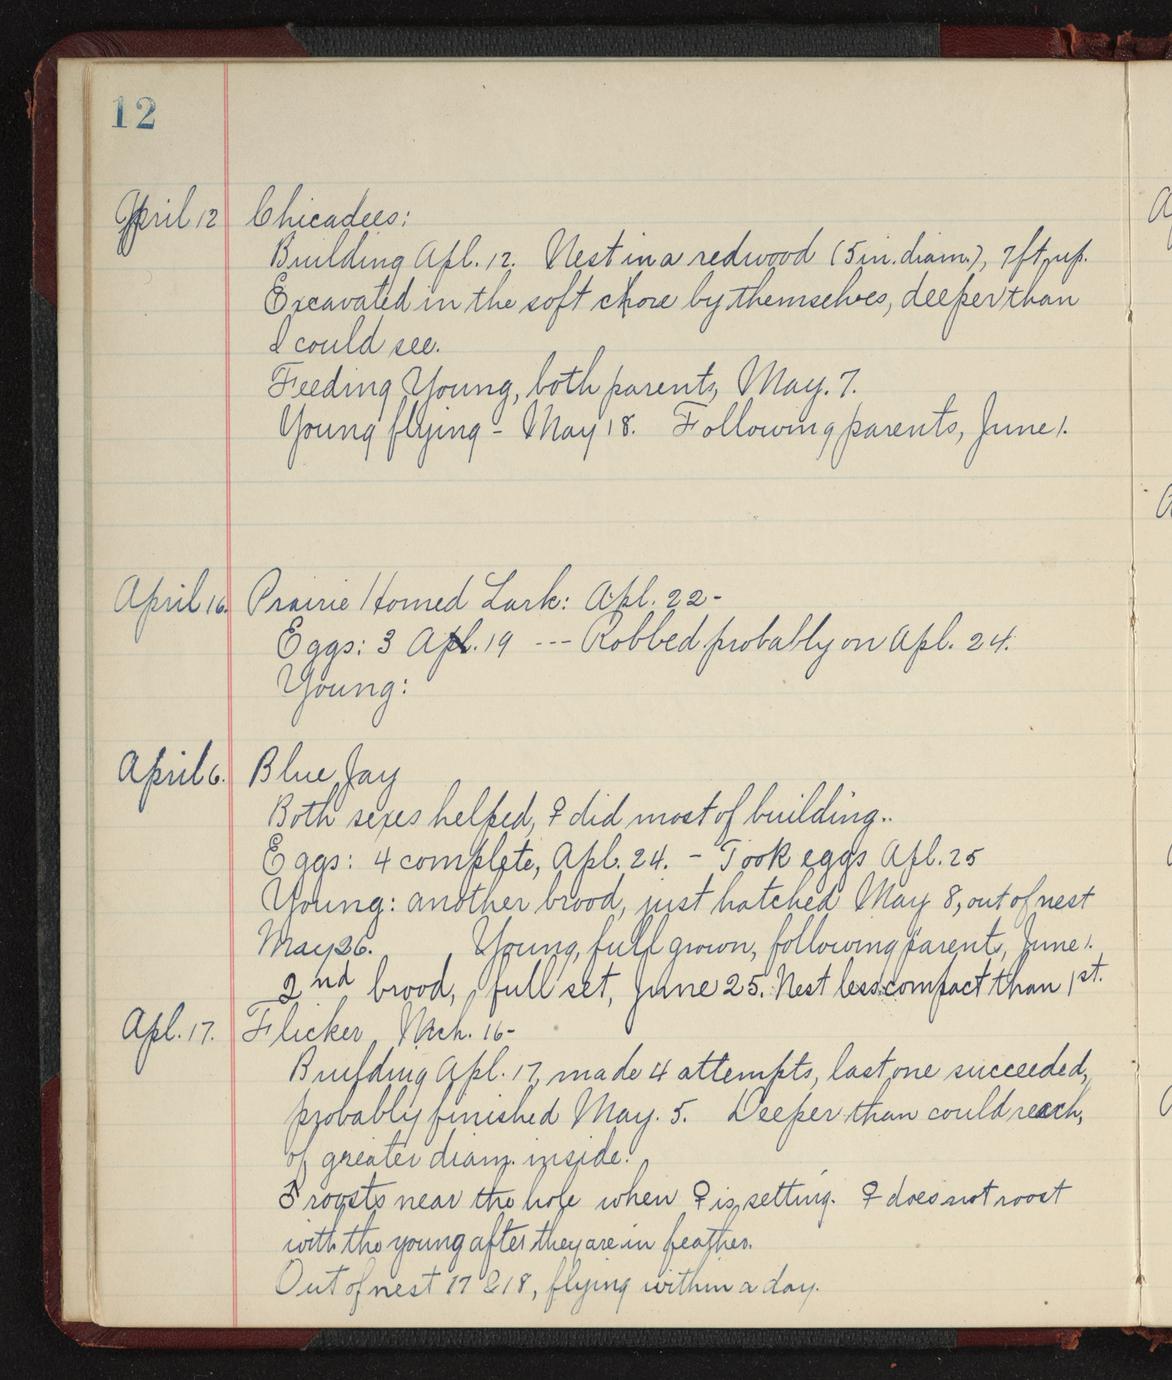 12
April 12 Chicadees:
Building Apl. 12. Nest in a redwood (5 in. diam.), 7 ft, up.
Excavated in the soft by themselves, deeper than
I could see.
Feeding Young, both parents, May. 7.
Young flying - May 18. Following parents, June 1.
April 16. Prairie Horned Lark: Apl. 22-
Eggs: 3 Apl. 19 --- Robbed probably on Apl. 24.
Young:
April 6. Blue Jay
Both sexes helped, ♀ did most of building..
Eggs: 4 complete, Apl. 24. - Took eggs Apl. 25
Young: another brood, just hatched May 8, out of nest
May 26. Young, full grown, following parent, June 1.
2nd brood, full set, June 25. Nest less compact than 1st.
Apl. 17. Flicker Mch. 16-
Building Apl. 17, made 4 attempts, last one succeeded,
probably finished May. 5. Deeper than could reach,
of greater diam. inside.
♂ roosts near the hole when ♀ is setting. ♀ does not roost
with the young after they are in feather.
Out of nest 17 & 18, flying within a day.